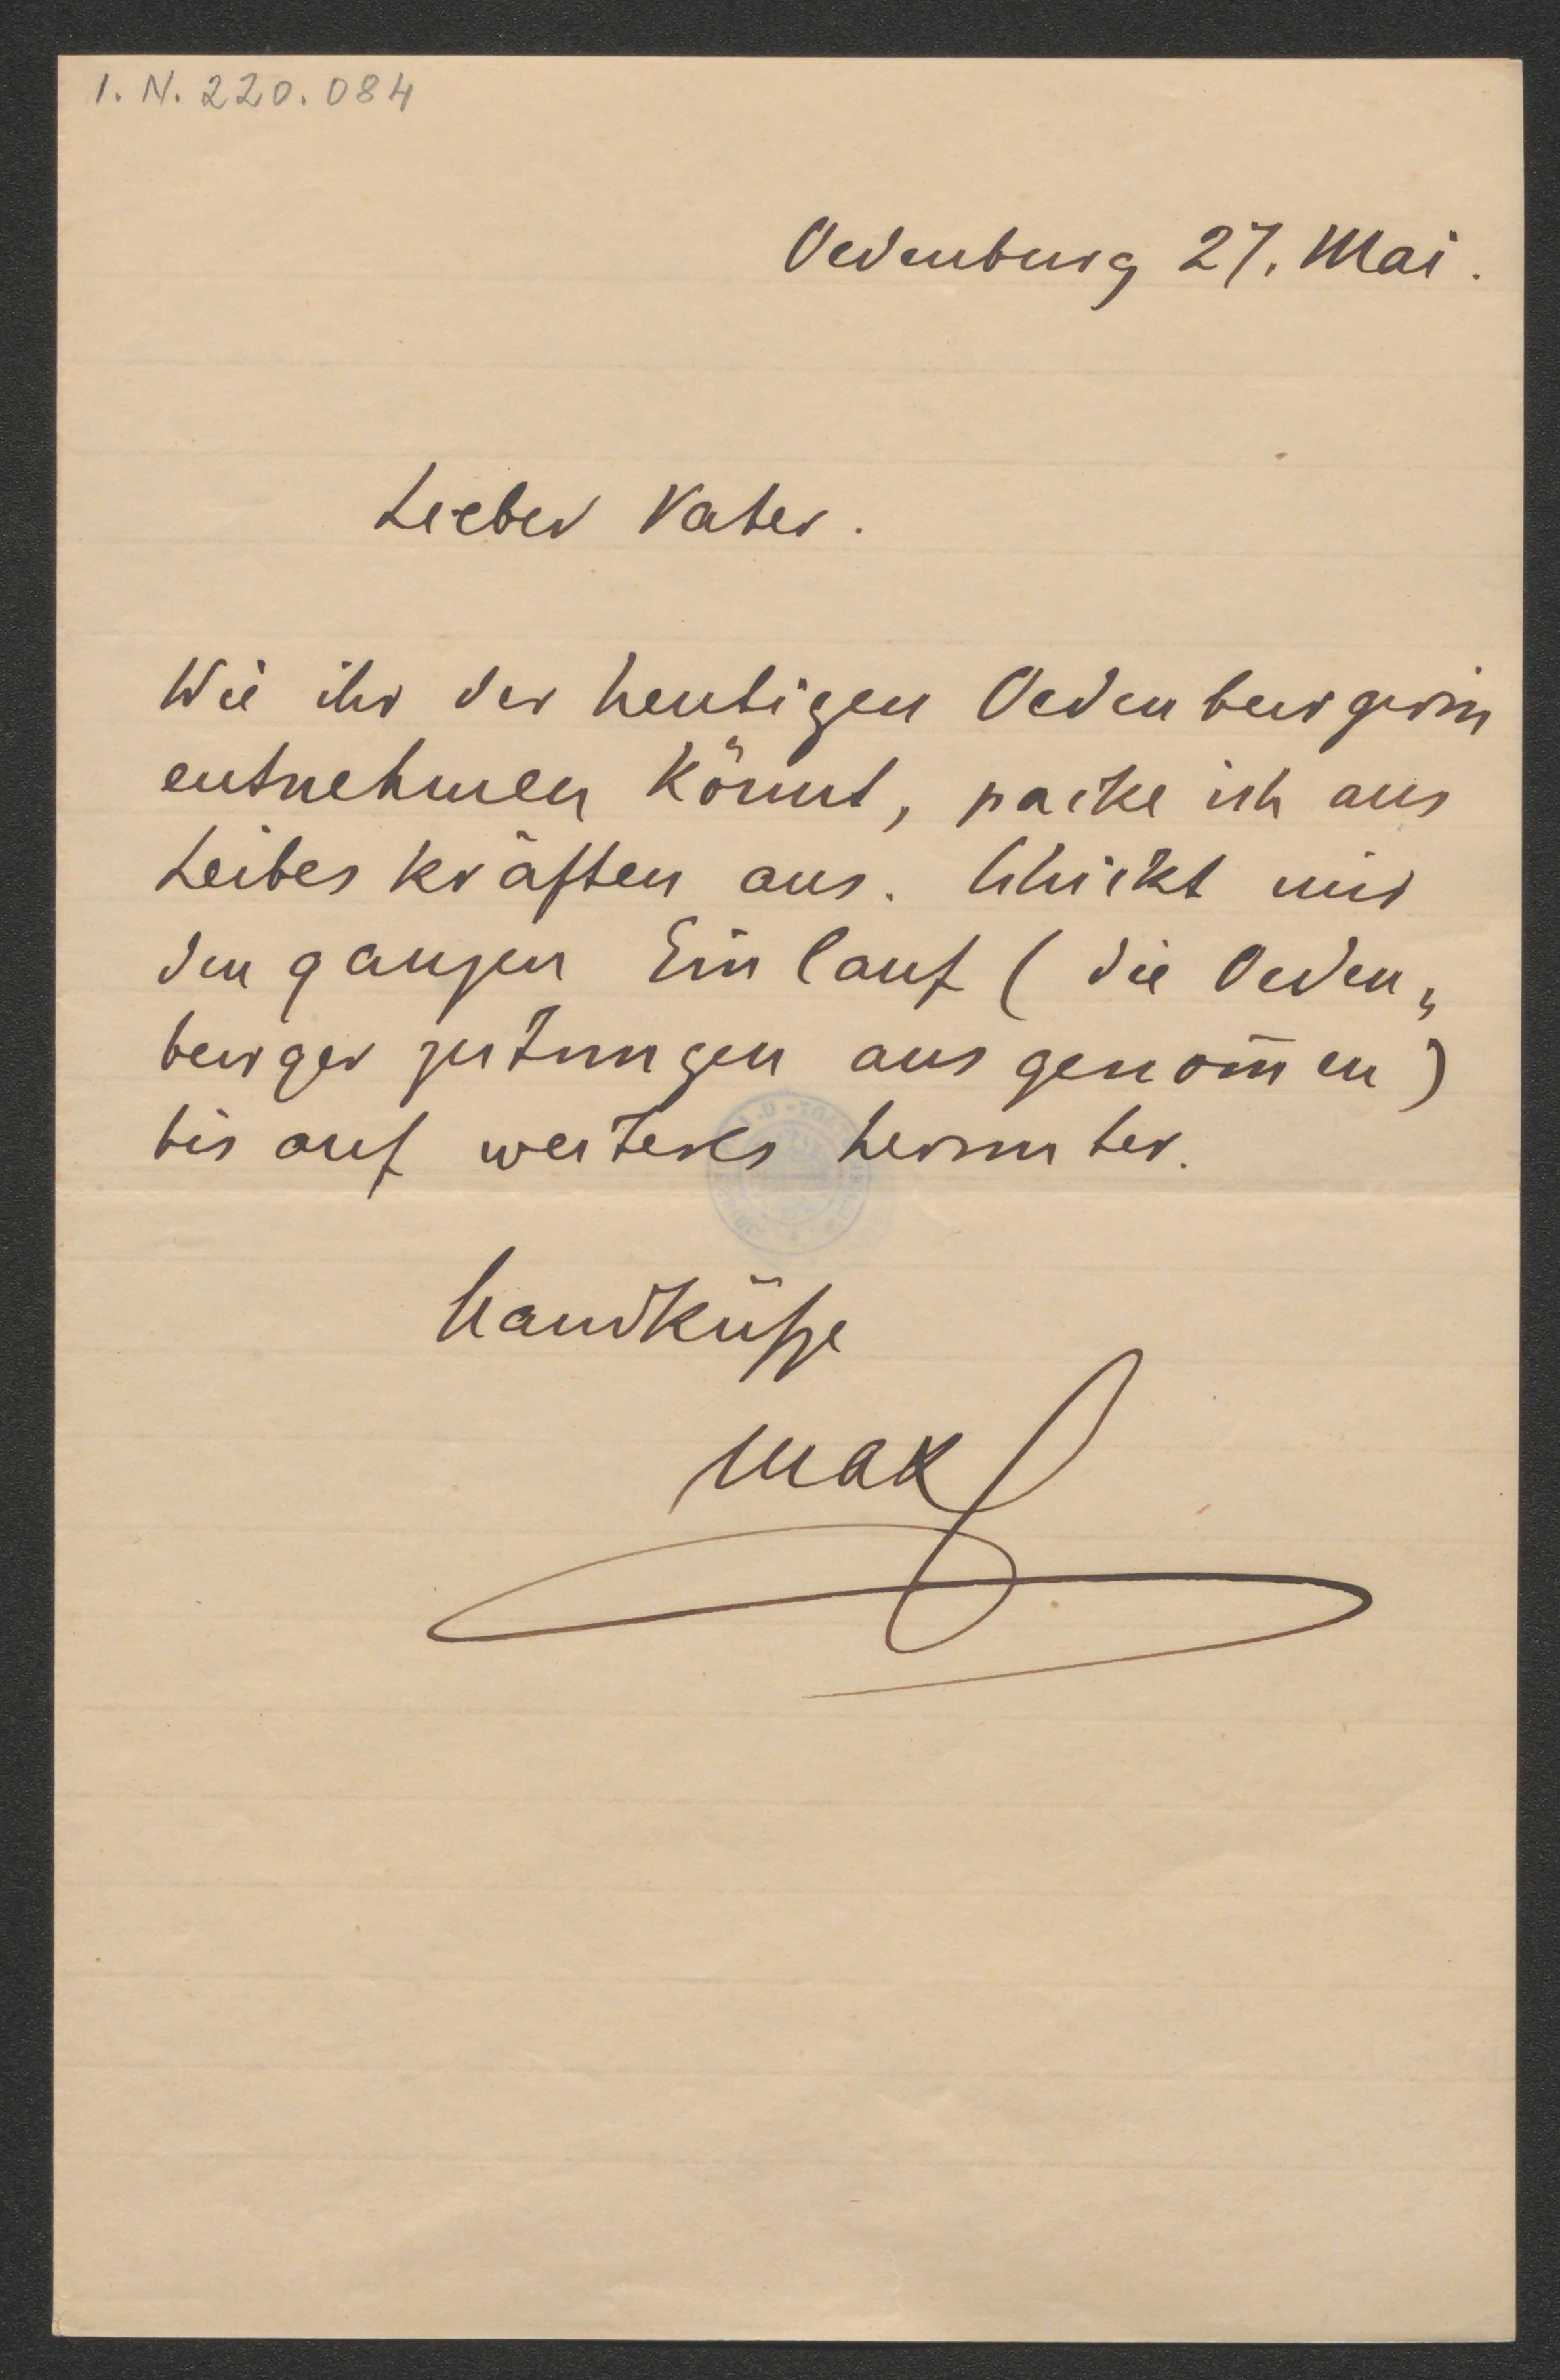 I. N. 220.084
Oedenburg 27. Mai.
Lieber Vater.
Wie ihr der heutigen Oedenburgerin
entnehmen könnt, packe ich aus
Leibeskräften aus. Schickt mir
den ganzen Einlauf (die Oeden„
burger zeitungen ausgenom̅en)
bis auf weiteres herunter.
Handküße
Max